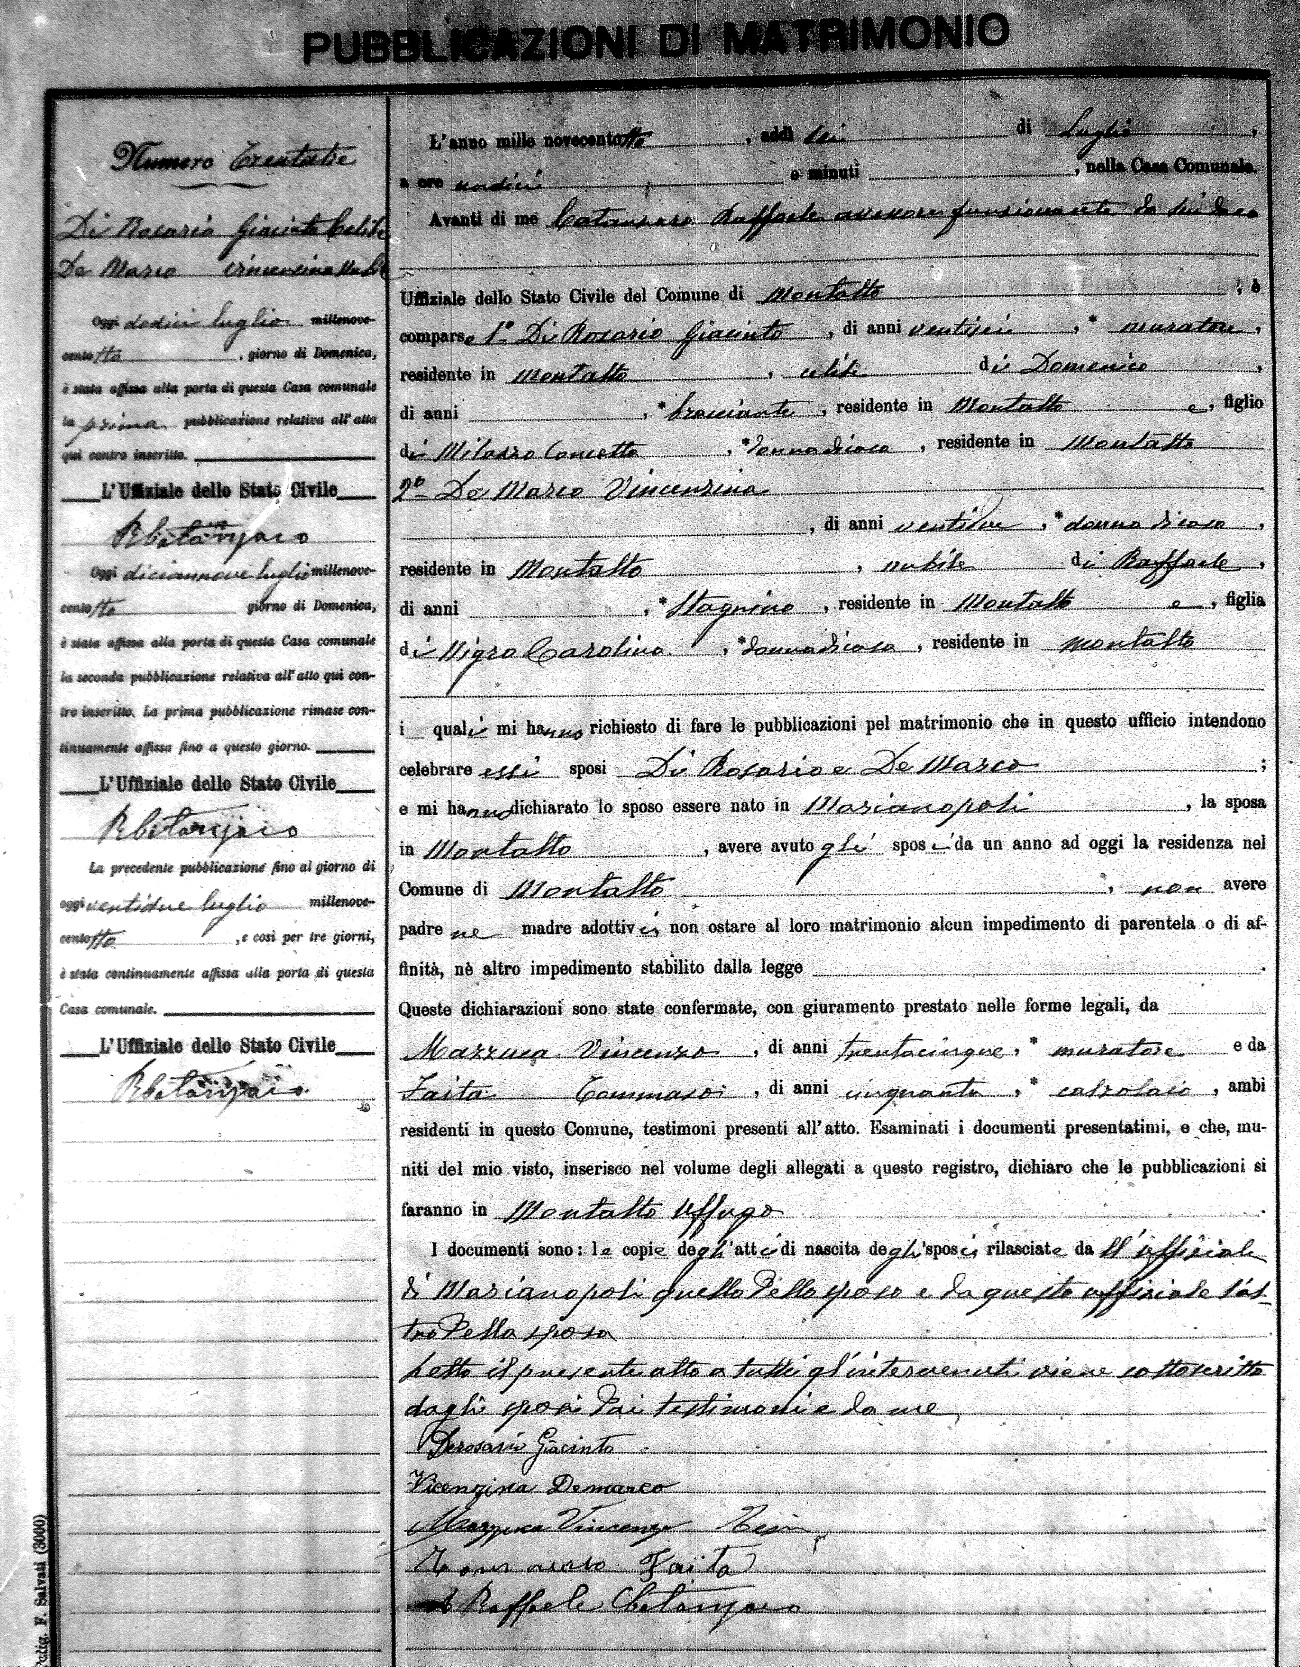 PUBBLICAZIONI DI MATRIMONIO
Numero Trentatre
Di Rosario Giacinto Celibe
De Marco Vincenzina Nubile
Oggi dodici luglio millenove-
cento otto, giorno di Domenica,
è stata affissa alla porta di questa Casa comunale
la prima pubblicazione relativa all'atto
qui contro inscritto.
L'Uffiziale dello Stato Civile
RCatanzaro
Oggi diciannove luglio millenove-
cento otto giorno di Domenica,
è stata affissa alla porta di questa Casa comunale
la seconda pubblicazione relativa all'atto qui con-
tro inscritto. La prima pubblicazione rimase con-
tinuamente affissa fino a questo giorno.
L'Uffiziale dello Stato Civile
RCatanzaro
La precedente pubblicazione fino al giorno di
oggi ventidue luglio millenove-
cento otto, e così per tre giorni,
è stata continuamente affissa alla porta di questa
Casa comunale.
L'Uffiziale dello Stato Civile
RCatanzaro
L'anno mille novecentotto, addì sei di Luglio,
a ore undici e minuti , nella Casa Comunale.
Avanti di me Catanzaro Raffaele assessore funzionante da Sindaco
Uffiziale dello Stato Civile del Comune di Montalto, è
comparse 1° Di Rosario Giacinto, di anni ventisei, * muratore,
residente in Montalto, celibe di Domenico,
di anni , * bracciante, residente in Montalto e, figlio
di Milazzo Concetta, * donna di casa, residente in Montalto
2° De Marco Vincenzina
, di anni ventidue, * donna di casa,
residente in Montalto, nubile di Raffaele,
di anni , * Stagnino, residente in Montalto e, figlia
di Nigro Carolina, * donna di casa, residente in Montalto
i quali mi hanno richiesto di fare le pubblicazioni pel matrimonio che in questo ufficio intendono
celebrare essi sposi Di Rosario e De Marco;
e mi hanno dichiarato lo sposo essere nato in Marianopoli, la sposa
in Montalto, avere avuto gli sposi da un anno ad oggi la residenza nel
Comune di Montalto, non avere
padre ne madre adottivi, non ostare al loro matrimonio alcun impedimento di parentela o di af-
finità, nè altro impedimento stabilito dalla legge.
Queste dichiarazioni sono state confermate, con giuramento prestato nelle forme legali, da
Mazzuca Vincenzo, di anni trentacinque, * muratore e da
Faita Tommaso, di anni cinquanta, * calzolaio, ambi
residenti in questo Comune, testimoni presenti all'atto. Esaminati i documenti presentatimi, e che, mu-
niti del mio visto, inserisco nel volume degli allegati a questo registro, dichiaro che le pubblicazioni si
faranno in Montalto Uffugo.
I documenti sono: le copie degli atti di nascita degli sposi rilasciate da ll'uffiziale
di Marianopoli quello dello sposo e da questo uffiziale l'al-
tro della sposa
Letto il presente atto a tutti gl'intervenuti viene sottoscritto
dagli sposi dai testimoni e da me
Derosario Giacinto
Vicenzina Demarco
Mazzuca Vincenzo Tes
Tommaso Faita
Raffaele Catanzaro
F. Salvati (3000)